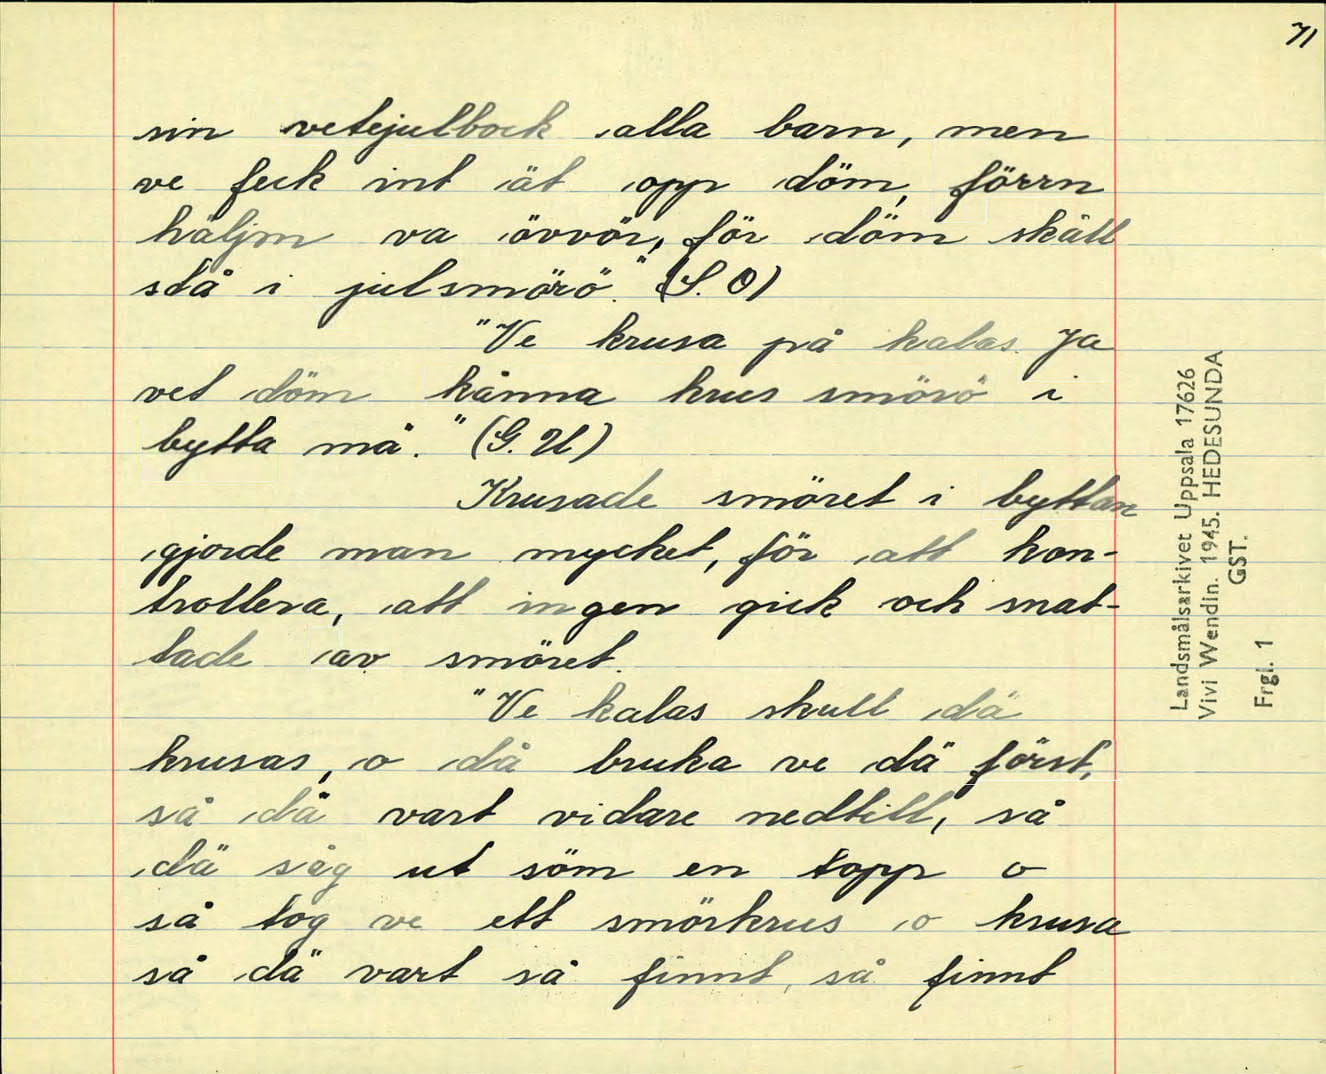 71
sin vetejulbock alla barn, men
ve feck int ät opp döm, förrn
häljm va övvör, för döm skåll
stå i julsmörö." (S. O)
"Ve krusa på kalas. Ja
vet döm kånna krus smörö i
bytta må". " (G. U)
Krusade smöret i byttan
gjorde man mycket, för att kon-
trollera, att ingen gick och snat-
tade av smöret.
"Ve kalas skull dä
krusas, o då bruka ve dä först,
så dä vart vidare nedtill, så
dä såg ut söm en topp o
så tog ve ett smörkrus o krusa
så dä vart så finnt, så finnt
Landsmålsarkivet Uppsala 17626
Vivi Wendin. 1945. HEDESUNDA
GST.
Frgl. 1